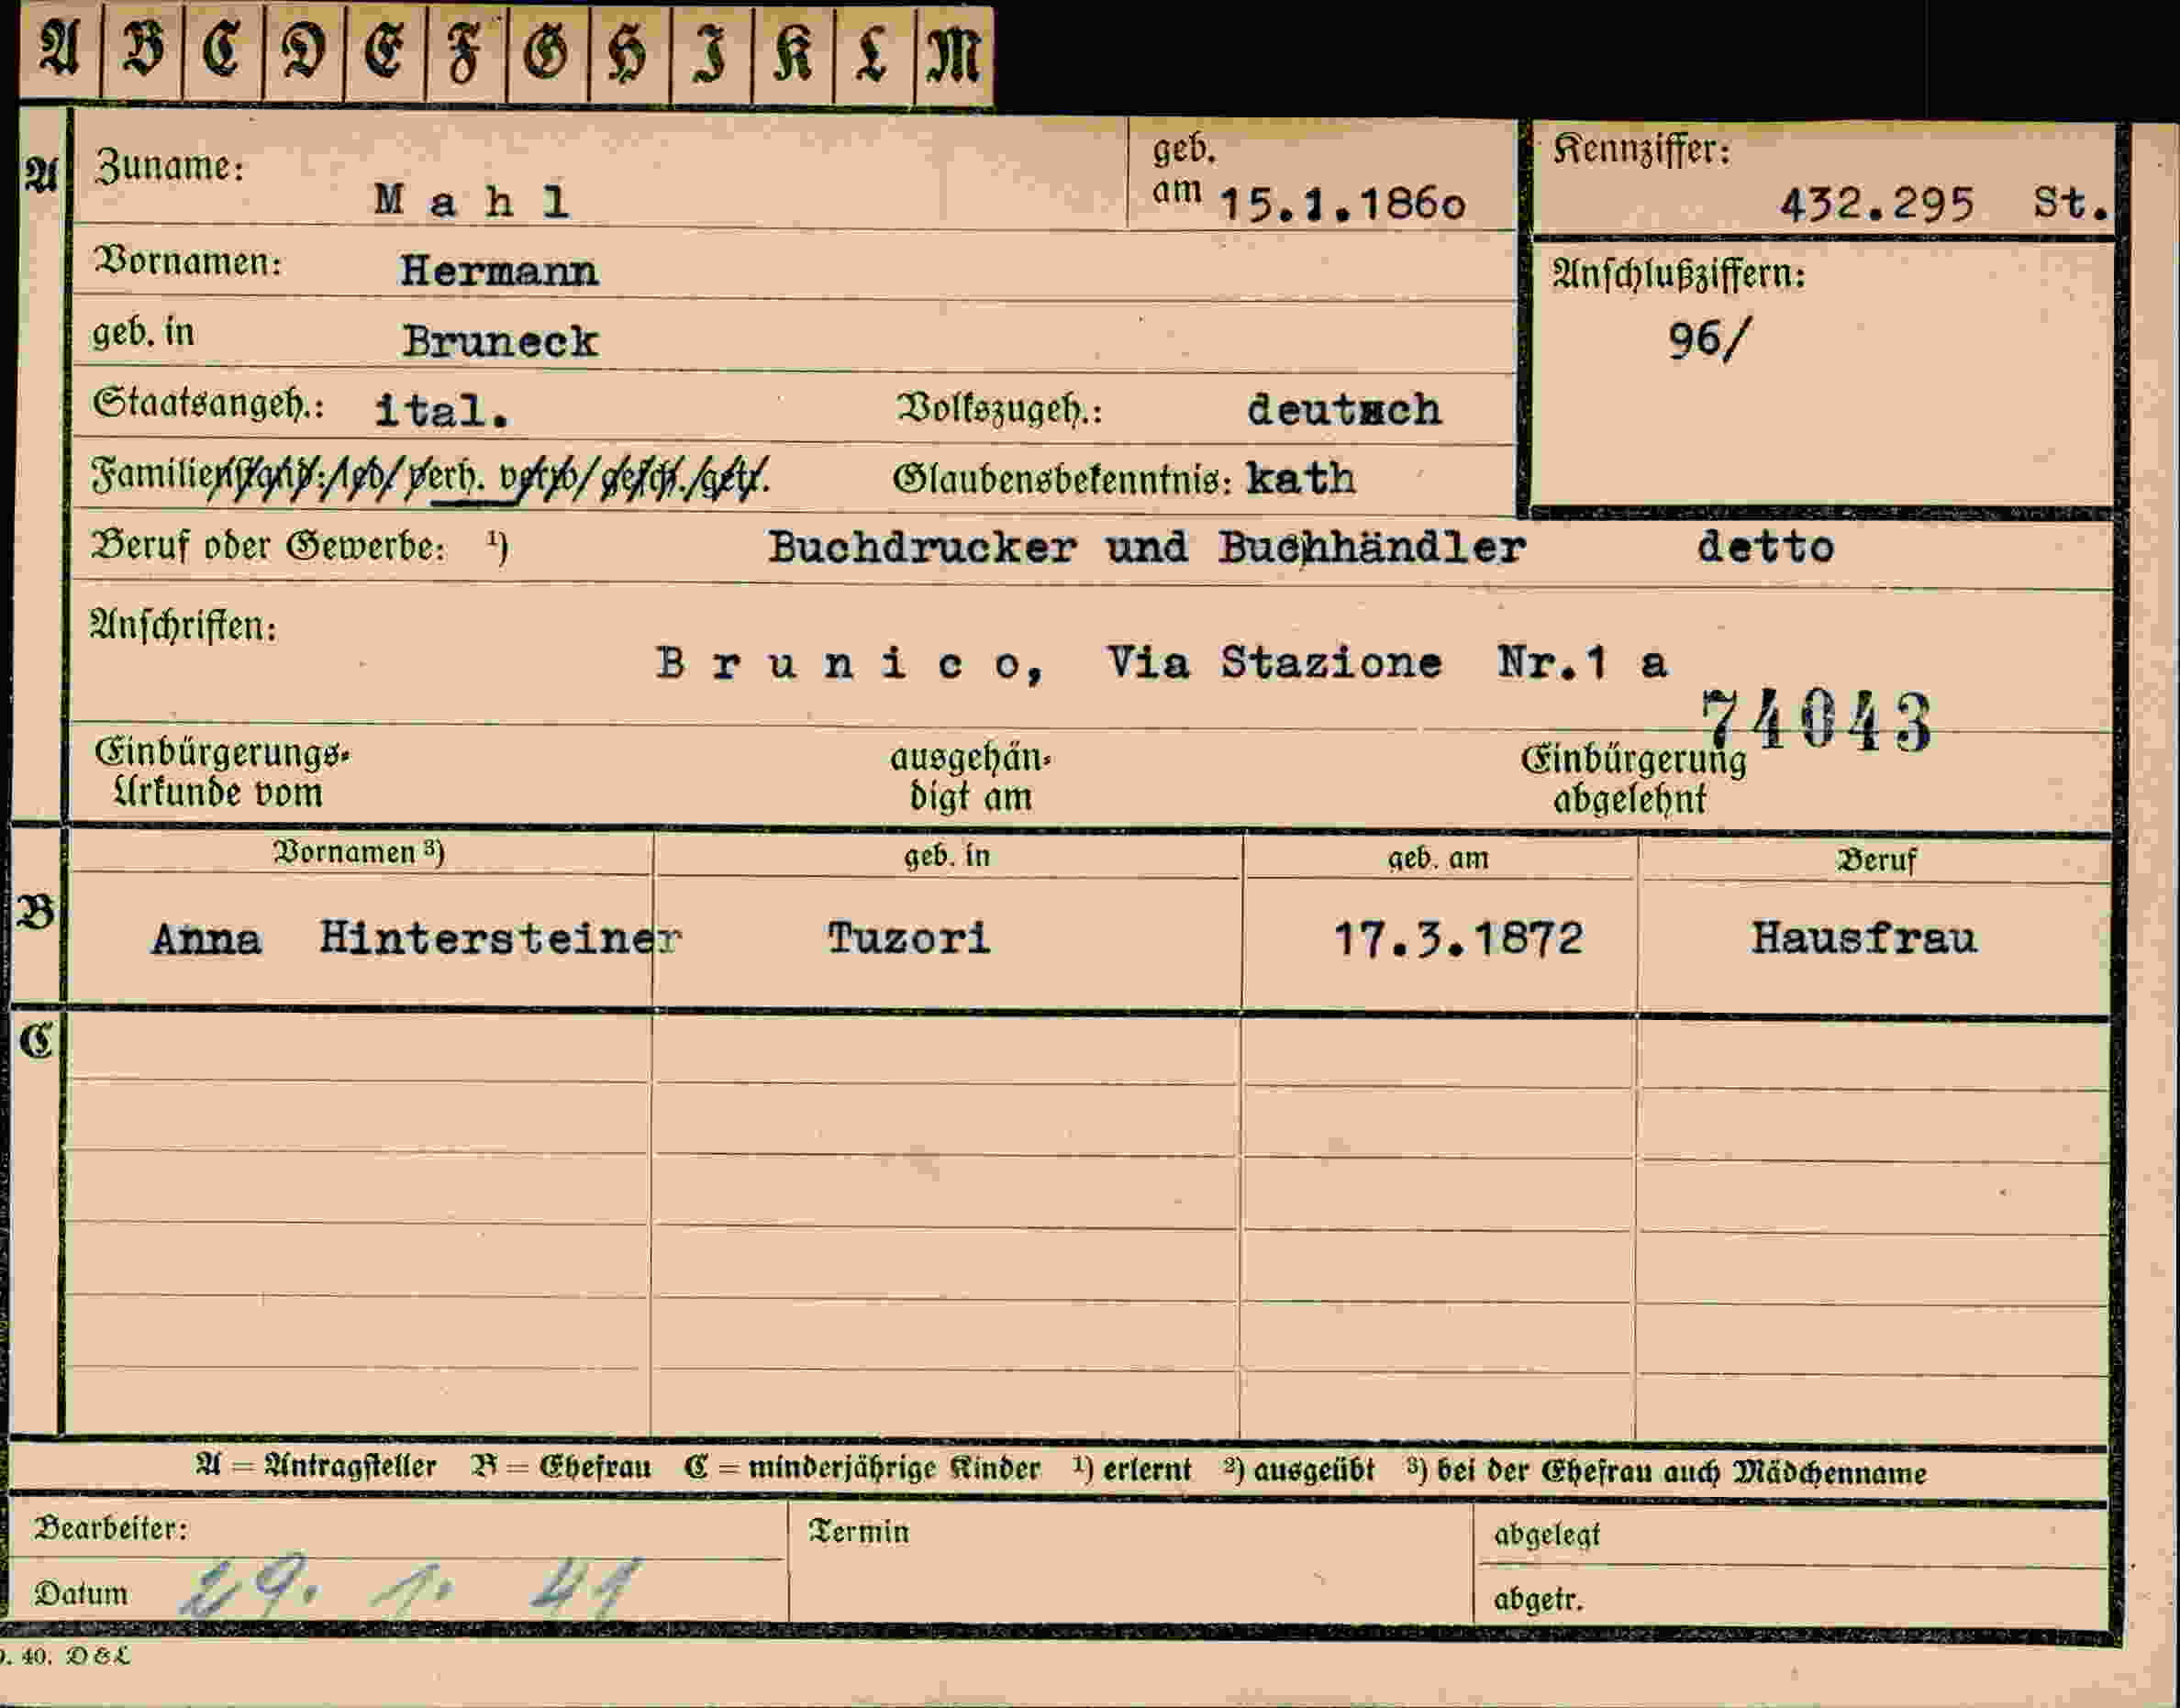 A B C D E F G H I K L M
A
Zuname: Mahl
geb. am 15.1.186o
Kennziffer: 432.295 St.
Vornamen: Hermann
Anschlußziffern: 96/
geb. in Bruneck
Staatsangeh.: ital. Volkszugeh.: deutsch
Familienstand: led/ verh. verw/ gesch./getr. Glaubensbekenntnis: kath
Beruf oder Gewerbe: ¹) Buchdrucker und Buchhändler detto
Anschriften: Brunico, Via Stazione Nr.1 a
74043
Einbürgerungs- ausgehän- Einbürgerung
Urkunde vom digt am abgelehnt
Vornamen ³) geb. in geb. am Beruf
B
Anna Hintersteiner Tuzori 17.3.1872 Hausfrau
C
A = Antragsteller B = Ehefrau C = minderjährige Kinder ¹) erlernt ²) ausgeübt ³) bei der Ehefrau auch Mädchenname
Bearbeiter: Termin abgelegt
Datum 29. 1. 41 abgetr.
. 40. D & L